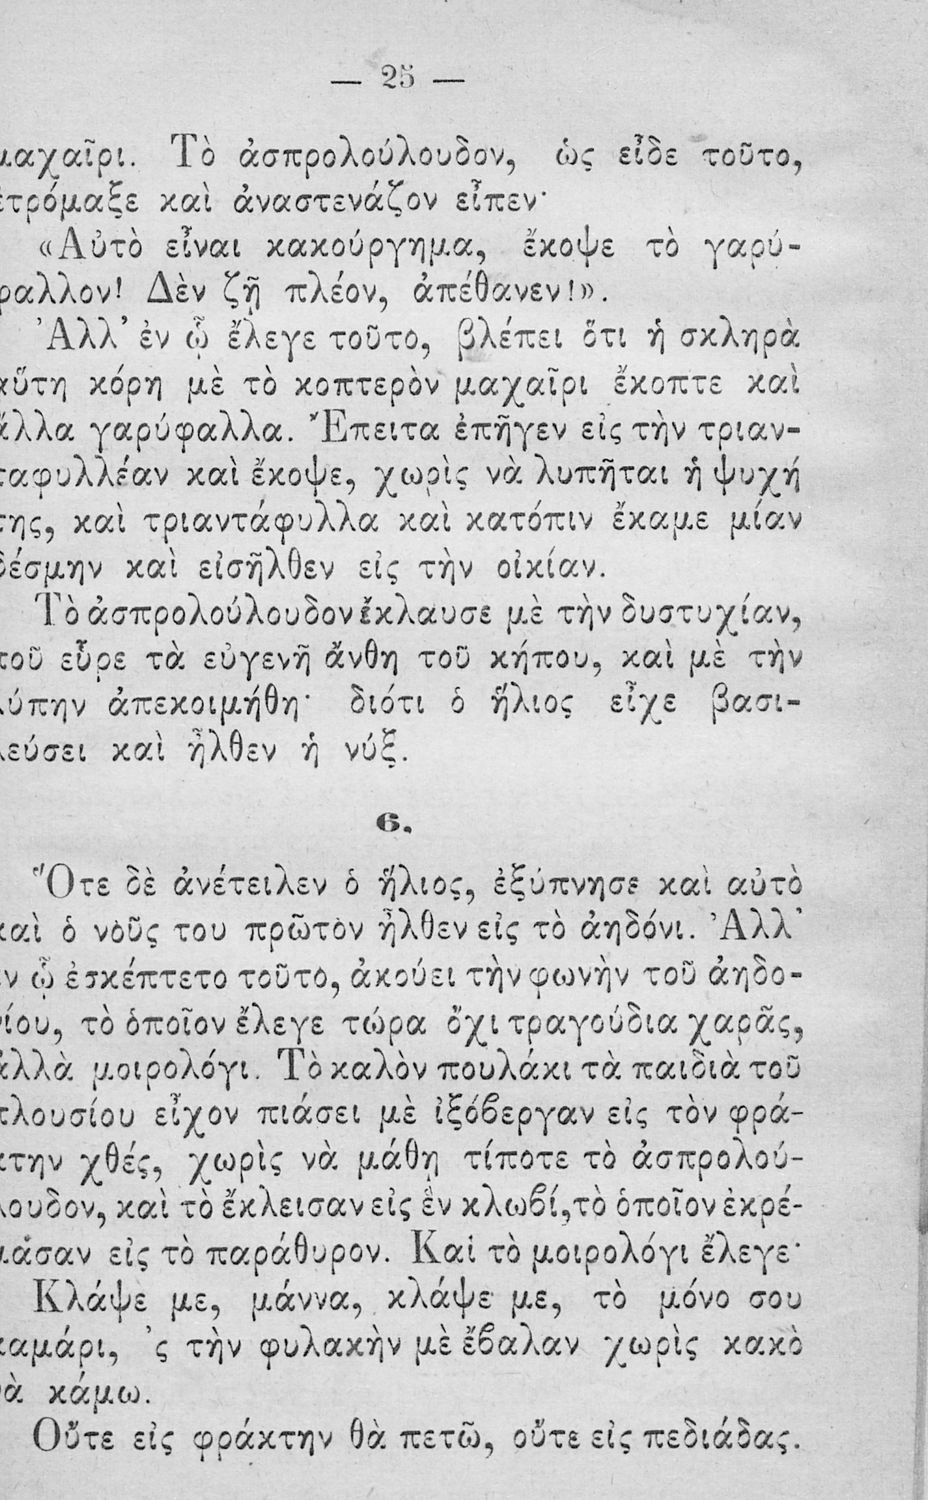 — 25 —
μαχαῖρι. Τὸ ἀσπρολούλουδον, ὡς εἶδε τοῦτο,
ἐτρόμαξε καὶ ἀναστενάζον εἶπεν·
«Αὐτὸ εἶναι κακούργημα, ἔκοψε τὸ γαρύ-
φαλλον! Δὲν ζῇ πλέον, ἀπέθανεν!».
Ἀλλ’ ἐν ᾧ ἔλεγε τοῦτο, βλέπει ὅτι ἡ σκληρὰ
αὕτη κόρη μὲ τὸ κοπτερὸν μαχαῖρι ἔκοπτε καὶ
ἄλλα γαρύφαλλα. Ἔπειτα ἐπῆγεν εἰς τὴν τριαν-
ταφυλλέαν καὶ ἔκοψε, χωρὶς νὰ λυπῆται ἡ ψυχή
της, καὶ τριαντάφυλλα καὶ κατόπιν ἔκαμε μίαν
δέσμην καὶ εἰσῆλθεν εἰς τὴν οἰκίαν.
Τὸ ἀσπρολούλουδον ἔκλαυσε μὲ τὴν δυστυχίαν,
ποῦ εὗρε τὰ εὐγενῆ ἄνθη τοῦ κήπου, καὶ μὲ τὴν
λύπην ἀπεκοιμήθη· διότι ὁ ἥλιος εἶχε βασι-
λεύσει καὶ ἦλθεν ἡ νύξ.
6.
Ὅτε δὲ ἀνέτειλεν ὁ ἥλιος, ἐξύπνησε καὶ αὐτὸ
καὶ ὁ νοῦς του πρῶτον ἦλθεν εἰς τὸ ἀηδόνι. Ἀλλ’
ἐν ᾧ ἐσκέπτετο τοῦτο, ἀκούει τὴν φωνὴν τοῦ ἀηδο-
νίου, τὸ ὁποῖον ἔλεγε τώρα ὄχι τραγούδια χαρᾶς,
ἀλλὰ μοιρολόγι. Τὸ καλὸν πουλάκι τὰ παιδιὰ τοῦ
πλουσίου εἶχον πιάσει μὲ ἰξόβεργαν εἰς τὸν φρά-
κτην χθές, χωρὶς νὰ μάθῃ τίποτε τὸ ἀσπρολού-
λουδον, καὶ τὸ ἔκλεισαν εἰς ἓν κλωβί, τὸ ὁποῖον ἐκρέ-
μασαν εἰς τὸ παράθυρον. Καὶ τὸ μοιρολόγι ἔλεγε·
Κλάψε με, μάννα, κλάψε με, τὸ μόνο σου
καμάρι, ’ς τὴν φυλακὴν μὲ ἔβαλαν χωρὶς κακὸ
νὰ κάμω.
Οὔτε εἰς φράκτην θὰ πετῶ, οὔτε εἰς πεδιάδας.